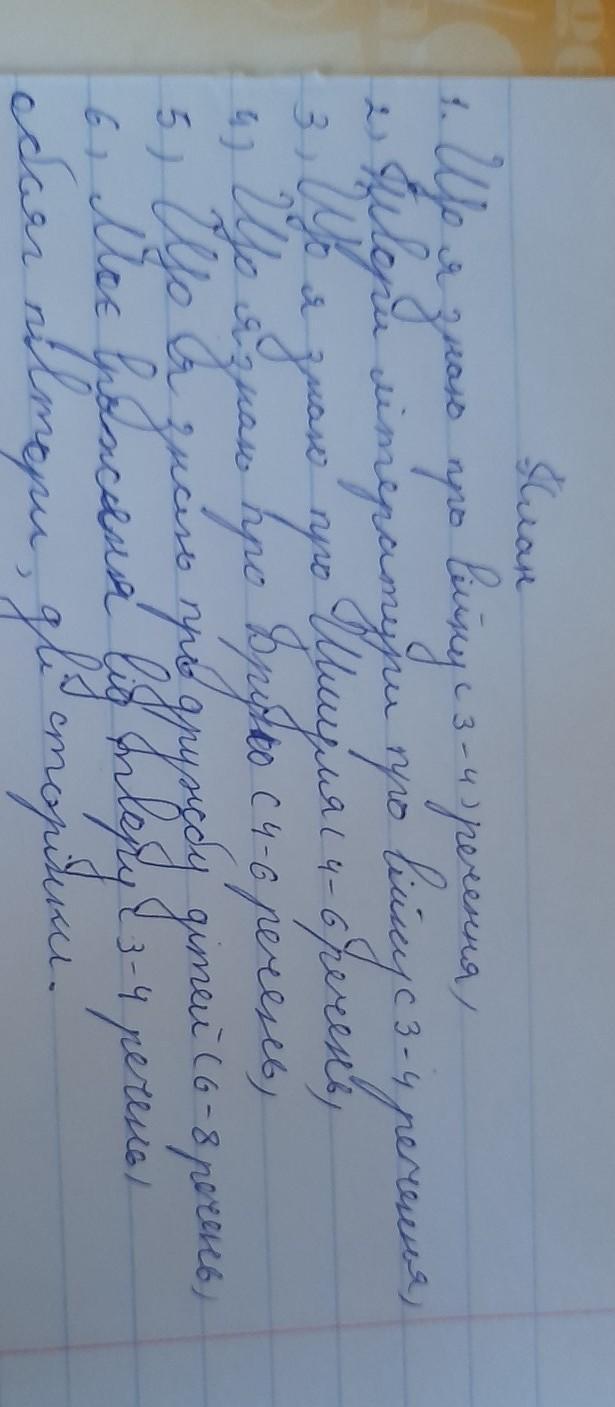 План
1. Що я знаю про війну (3-4) речення,
2) Твори літератури про війну (3-4 речення,
3) Що я знаю про Шмуля (4-6 речень,
4) Що я знаю про Бруно (4-6 речень,
5) Що я знаю про дружбу дітей (6-8 речень,
6) Моє враження від твору (3-4 речень,
обсяг півтори, дві сторінки.